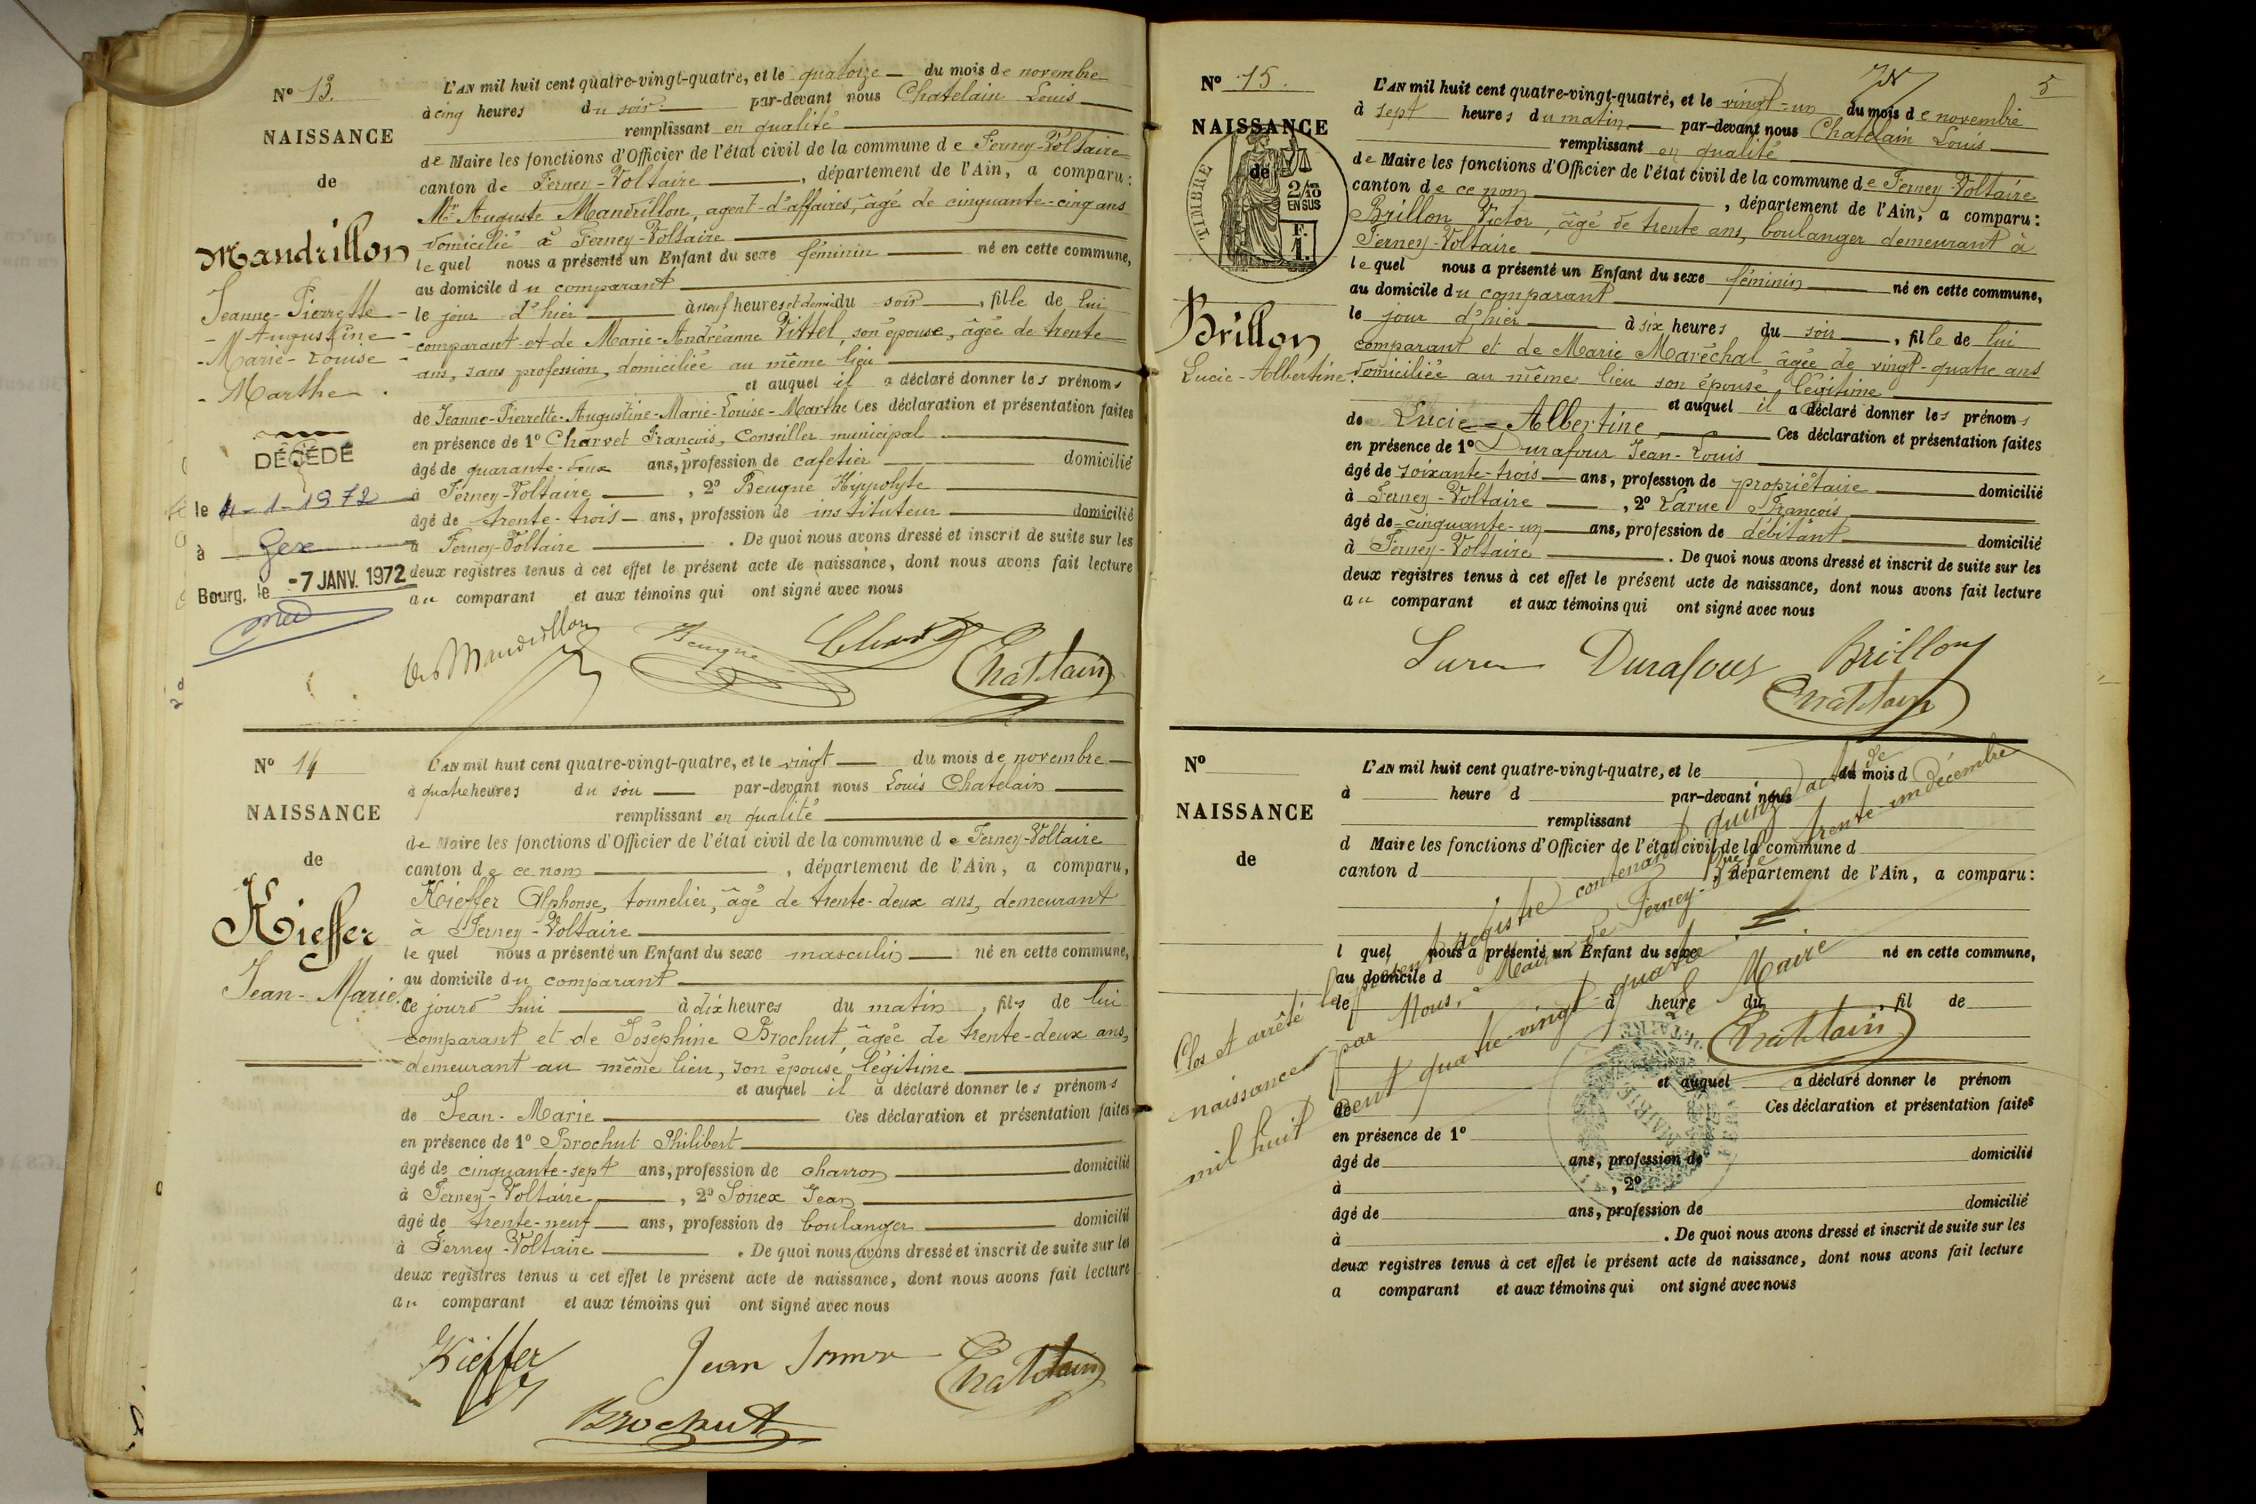 N° 13.
NAISSANCE
de
Mandrillon
Jeanne-Pierrette-
-Augustine-
-Marie-Louise-
-Marthe.
DÉCÉDÉ
le 4-1-1972
à Gex
Bourg, le -7 JANV. 1972
L'AN mil huit cent quatre-vingt-quatre, et le quatorze du mois de novembre
à cinq heures du soir par-devant nous Chatelain Louis
remplissant en qualité
de Maire les fonctions d'Officier de l'état civil de la commune de Ferney-Voltaire
canton de Ferney-Voltaire, département de l'Ain, a comparu:
Mr Auguste Mandrillon, agent-d'affaires, âgé de cinquante-cinq ans
domicilié à Ferney-Voltaire
lequel nous a présenté un Enfant du sexe féminin né en cette commune,
au domicile du comparant
le jour d'hier à neuf heures et demi du soir, fille de lui
comparant et de Marie-Andréanne Vittel, son épouse, âgée de trente
ans, sans profession, domiciliée au même lieu
et auquel il a déclaré donner les prénoms
de Jeanne-Pierrette-Augustine-Marie-Louise-Marthe Ces déclaration et présentation faites
en présence de 1° Charvet François, Conseiller municipal
âgé de quarante-deux ans, profession de cafetier domicilié
à Ferney-Voltaire, 2° Beugne Hippolyte
âgé de trente-trois ans, profession de instituteur domicilié
à Ferney-Voltaire. De quoi nous avons dressé et inscrit de suite sur les
deux registres tenus à cet effet le présent acte de naissance, dont nous avons fait lecture
au comparant et aux témoins qui ont signé avec nous
Mandrillon Beugne Chatelain
N° 14
NAISSANCE
de
Kieffer
Jean-Marie.
L'AN mil huit cent quatre-vingt-quatre, et le vingt du mois de novembre
à quatre heures du soir par-devant nous Louis Chatelain
remplissant en qualité
de Maire les fonctions d'Officier de l'état civil de la commune de Ferney-Voltaire
canton de ce nom, département de l'Ain, a comparu,
Kieffer Alphonse, tonnelier, âgé de trente-deux ans, demeurant
à Ferney-Voltaire
lequel nous a présenté un Enfant du sexe masculin né en cette commune,
au domicile du comparant
ce jourd'hui à dix heures du matin, fils de lui
comparant et de Joséphine Brochut, âgée de trente-deux ans,
demeurant au même lieu, son épouse légitime
et auquel il a déclaré donner les prénoms
de Jean-Marie Ces déclaration et présentation faites
en présence de 1° Brochut Philibert
âgé de cinquante-sept ans, profession de charron domicilié
à Ferney-Voltaire, 2° Jonex Jean
âgé de trente-neuf ans, profession de boulanger domicilié
à Ferney-Voltaire. De quoi nous avons dressé et inscrit de suite sur les
deux registres tenus à cet effet le présent acte de naissance, dont nous avons fait lecture
au comparant et aux témoins qui ont signé avec nous
Kieffer Jean Chatelain
Brochut
5
N° 15.
NAISSANCE
de
TIMBRE
2/10 EN SUS
F. 1.
Brillon
Lucie-Albertine.
L'AN mil huit cent quatre-vingt-quatre, et le vingt-un du mois de novembre
à sept heures du matin par-devant nous Chatelain Louis
remplissant en qualité
de Maire les fonctions d'Officier de l'état civil de la commune de Ferney-Voltaire
canton de ce nom, département de l'Ain, a comparu:
Brillon Victor, âgé de trente ans, boulanger demeurant à
Ferney-Voltaire
lequel nous a présenté un Enfant du sexe féminin né en cette commune,
au domicile du comparant
le jour d'hier à six heures du soir, fille de lui
comparant et de Marie Maréchal âgée de vingt-quatre ans
domiciliée au même lieu son épouse légitime
et auquel il a déclaré donner les prénoms
de Lucie-Albertine Ces déclaration et présentation faites
en présence de 1° Durafour Jean-Louis
âgé de soixante-trois ans, profession de propriétaire domicilié
à Ferney-Voltaire, 2° Larue François
âgé de cinquante-un ans, profession de débitant domicilié
à Ferney-Voltaire. De quoi nous avons dressé et inscrit de suite sur les
deux registres tenus à cet effet le présent acte de naissance, dont nous avons fait lecture
au comparant et aux témoins qui ont signé avec nous
Durafour Brillon
Chatelain
N°
NAISSANCE
de
L'AN mil huit cent quatre-vingt-quatre, et le du mois d
à heure d par-devant nous
remplissant
d Maire les fonctions d'Officier de l'état civil de la commune d
canton d, département de l'Ain, a comparu:
l quel nous a présenté un Enfant du sexe né en cette commune,
au domicile d
le à heure du, fil de
et auquel a déclaré donner le prénom
de Ces déclaration et présentation faites
en présence de 1°
âgé de ans, profession de domicilié
à, 2°
âgé de ans, profession de domicilié
à. De quoi nous avons dressé et inscrit de suite sur les
deux registres tenus à cet effet le présent acte de naissance, dont nous avons fait lecture
a comparant et aux témoins qui ont signé avec nous
Clos et arrêté le présent registre contenant quinze actes de
naissances par Nous, Maire de Ferney-Vre le trente-un décembre
mil huit cent quatre-vingt-quatre.
Le Maire
Chatelain
MAIRIE